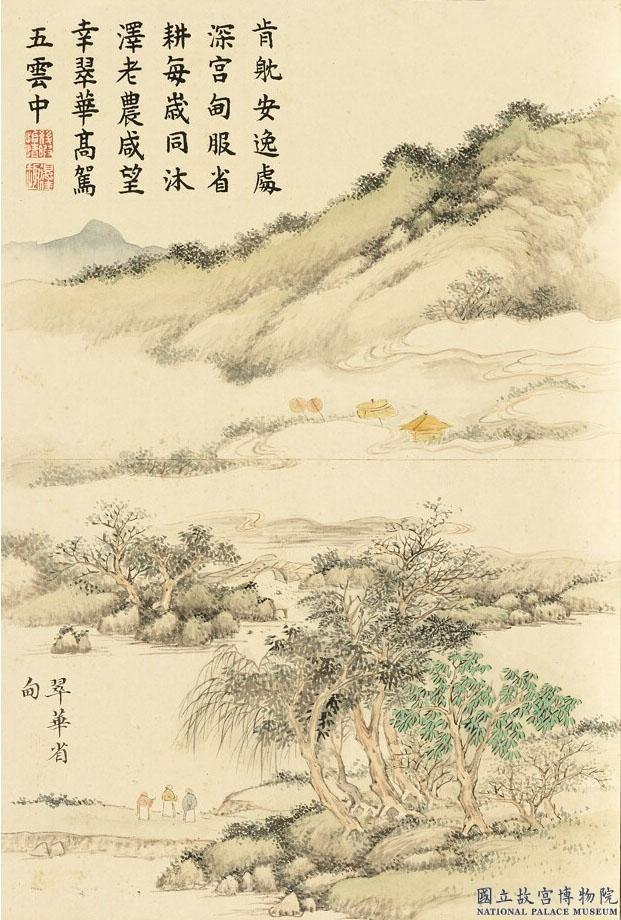 肯躭安逸處
深宮甸服省
耕每歲同沐
澤老農咸望
幸翠華高駕
五雲中
翠華省
甸
國立故宮博物院
NATIONAL PALACE MUSEUM